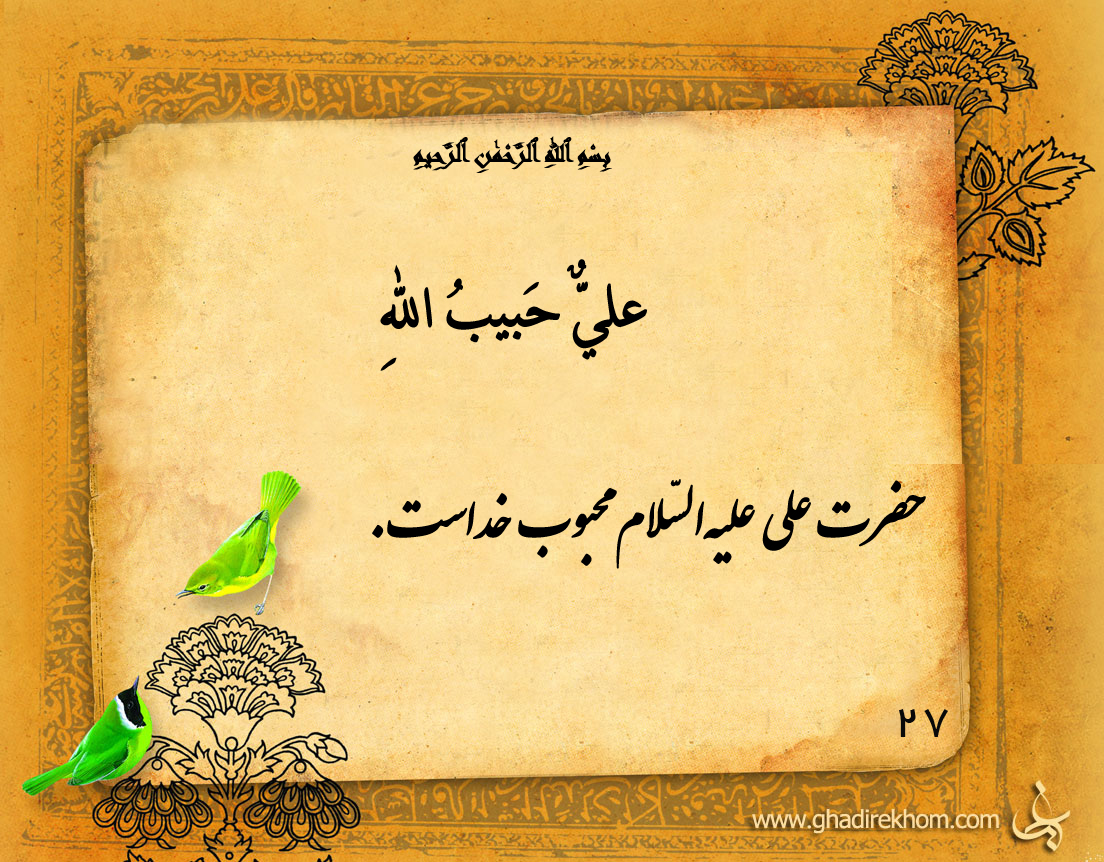 بِسْمِ ٱللَّهِ ٱلرَّحْمَٰنِ ٱلرَّحِيمِ
عليٌّ حَبيبُ اللهِ
حضرت علی علیه السّلام محبوب خداست.
۲۷
www.ghadirekhom.com